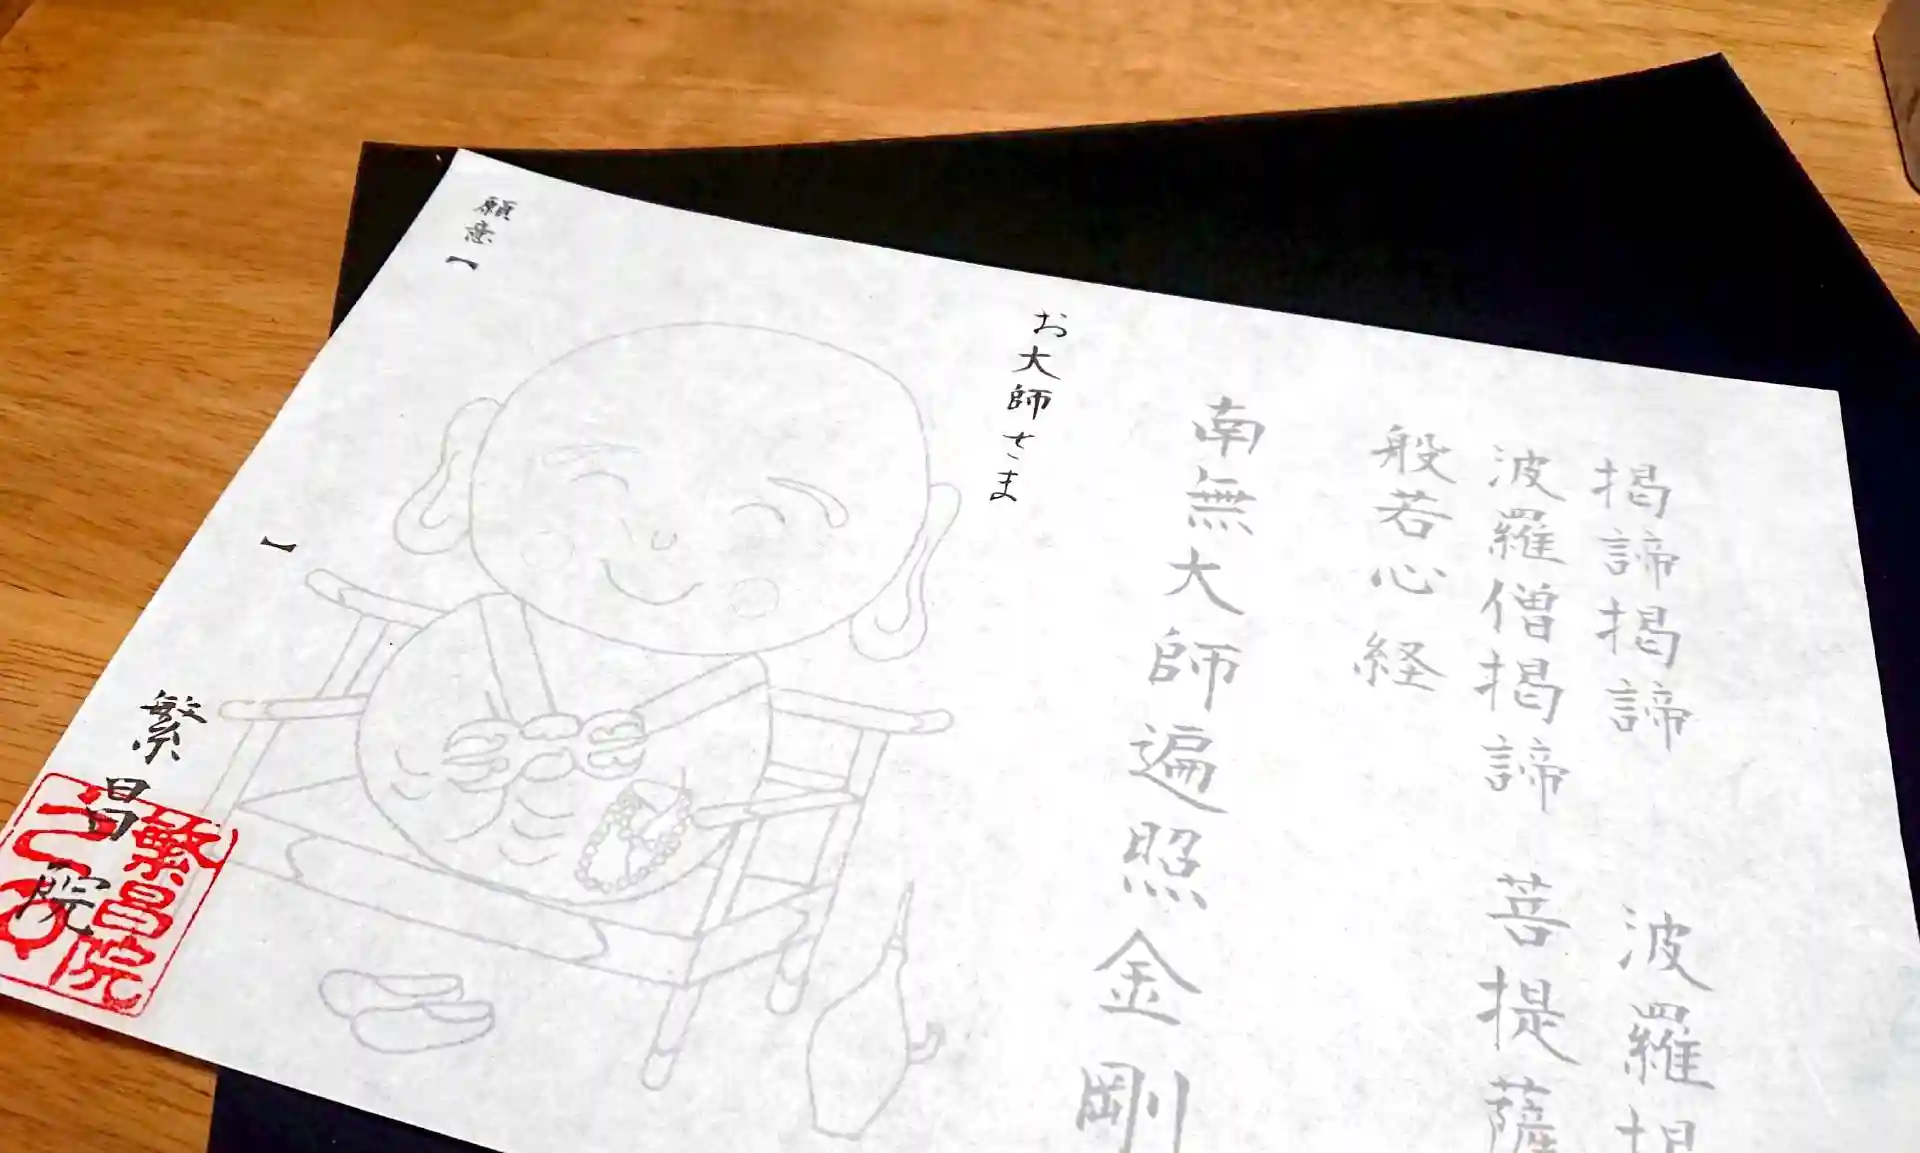 掲諦掲諦 波羅
波羅僧掲諦 菩提薩
般若心経
南無大師遍照金剛
お大師さま
願意【 】
繁昌院
繁昌院